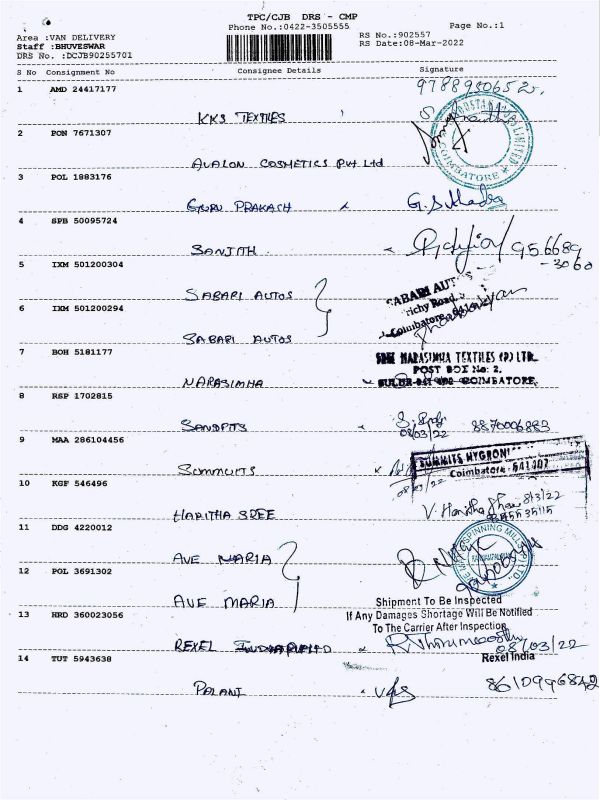 TPC/CJB DRS - CMP
Phone No.:0422-3505555
Page No.:1
Area :VAN DELIVERY
Staff :BHUVESWAR
DRS No. :DCJB90255701
RS No.:902557
RS Date:08-Mar-2022
S No Consignment No Consignee Details Signature
1 AMD 24417177
KKS TEXTILES
9788950652
2 PON 7671307
AVALON COSMETICS Pvt Ltd
COIMBATORE
LIMITED
3 POL 1883176
GURU PRAKASH
4 SPB 50095724
SANJITH
956689
-3060
5 IXM 501200304
SABARI AUTOS
SABARI AUTOS
Trichy Road,
Coimbatore
6 IXM 501200294
SABARI AUTOS
7 BOH 5181177
NARASIMHA
SREE NARASIMHA TEXTILES (P) LTD.
POST BOX No: 2,
COIMBATORE.
8 RSP 1702815
SANDPITS
08/03/22
8870006883
9 MAA 286104456
SUMMITS
08/03/22
SUMMITS HYGRONI
Coimbatore - 641 407
10 KGF 546496
HARITHA SREE
8/3/22
11 DDG 4220012
AVE MARIA
SPINNING MILLS (P) LTD.
12 PGL 3691302
AVE MARIA
Shipment To Be Inspected
If Any Damages Shortage Will Be Notified
To The Carrier After Inspection
13 HRD 360023056
REXEL
08/03/22
Rexel India
14 TUT 5943638
PALANI
8610996842